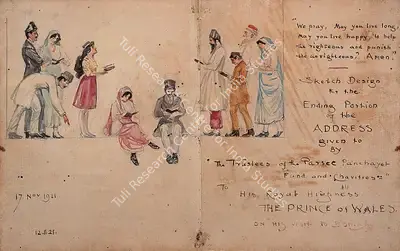 "We pray, May you live long,
may you live happy, to help
the righteous and punish
the unrighteous," Amen."
Sketch Design
for the
Ending Portion
of the
ADDRESS
given to
BY
"The Trustees of the Parsee Panchayet
Fund and Charities"
To
His Royal Highness
THE PRINCE OF WALES
on his visit to
17 Nov 1921
12.8.21.
Tuli Research Centre for India Studies